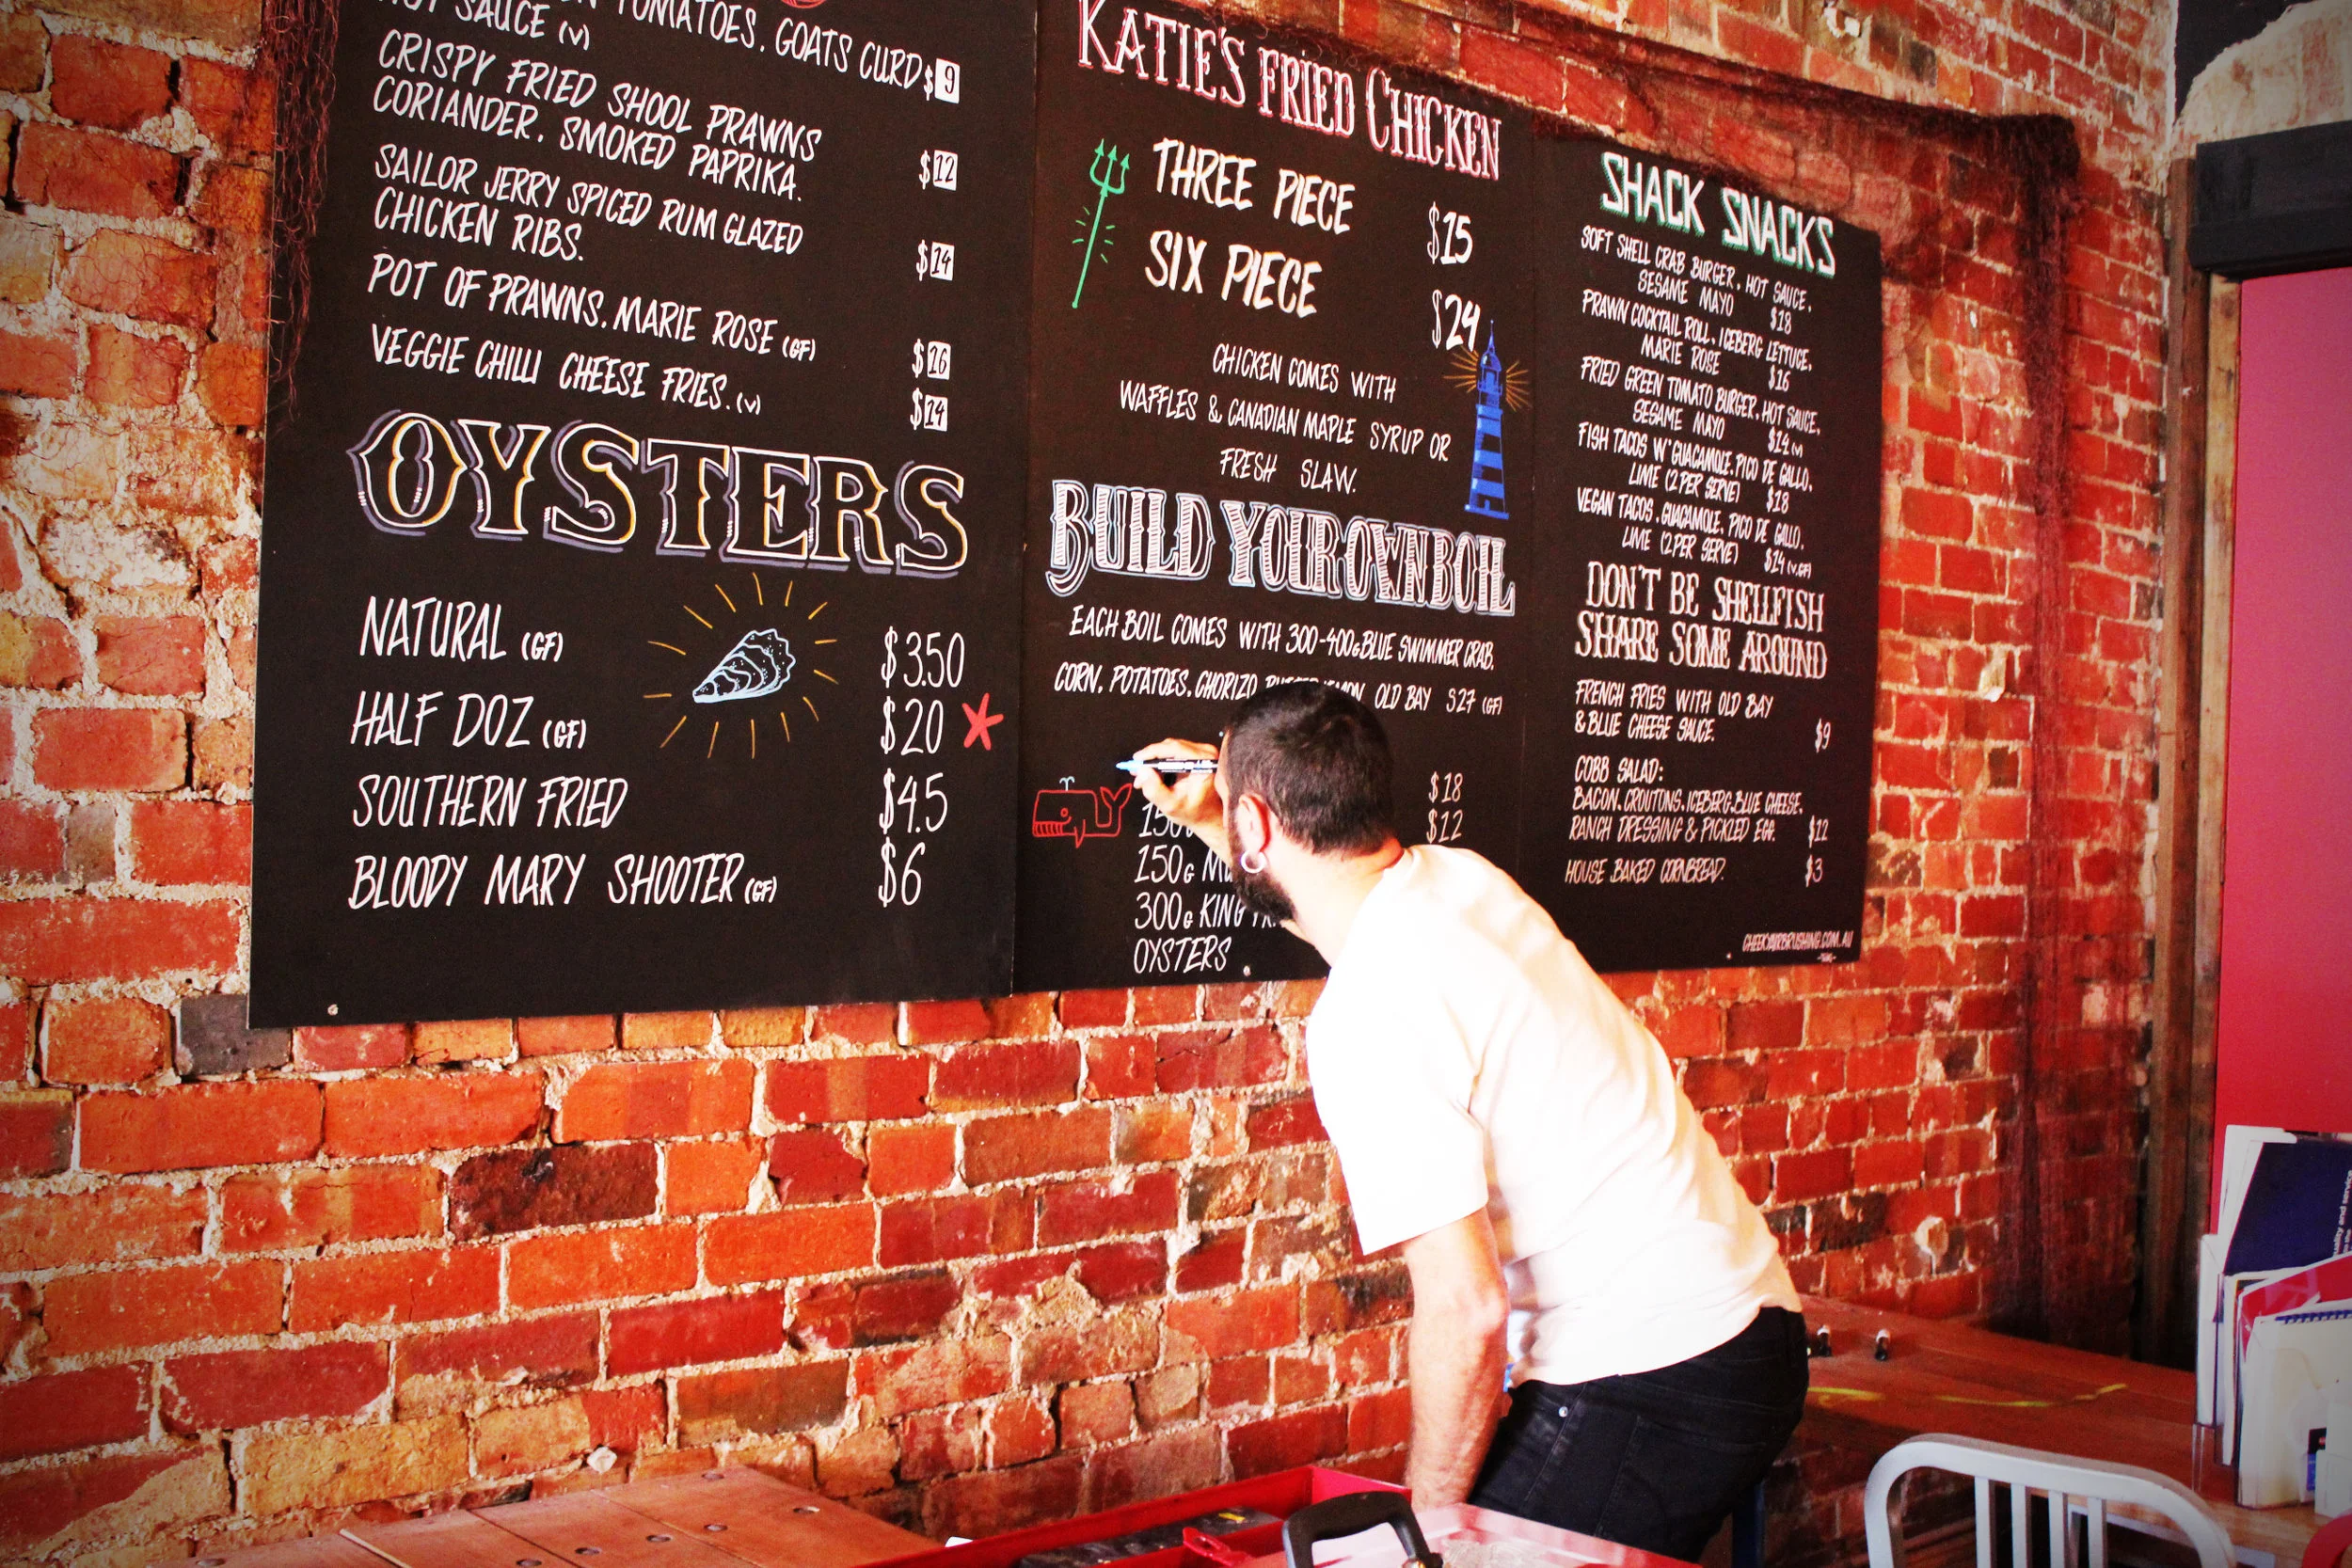 TOMATOES. GOATS CURD $9
HOT SAUCE (V)
CRISPY FRIED SHOOL PRAWNS
CORIANDER. SMOKED PAPRIKA. $12
SAILOR JERRY SPICED RUM GLAZED
CHICKEN RIBS. $14
POT OF PRAWNS. MARIE ROSE (GF) $16
VEGGIE CHILLI CHEESE FRIES. (V) $14
OYSTERS
NATURAL (GF) $3.50
HALF DOZ (GF) $20
SOUTHERN FRIED $4.5
BLOODY MARY SHOOTER (GF) $6
KATIE'S FRIED CHICKEN
THREE PIECE $15
SIX PIECE $24
CHICKEN COMES WITH
WAFFLES & CANADIAN MAPLE SYRUP OR
FRESH SLAW.
BUILD YOUR OWN BOIL
EACH BOIL COMES WITH 300-400G BLUE SWIMMER CRAB.
CORN. POTATOES. CHORIZO. OLD BAY $27 (GF)
$18
$12
150G
300G KING
OYSTERS
SHACK SNACKS
SOFT SHELL CRAB BURGER. HOT SAUCE.
SESAME MAYO $18
PRAWN COCKTAIL ROLL. ICEBERG LETTUCE.
MARIE ROSE $16
FRIED GREEN TOMATO BURGER. HOT SAUCE.
SESAME MAYO $14 (V)
FISH TACOS W' GUACAMOLE. PICO DE GALLO.
LIME (2 PER SERVE) $18
VEGAN TACOS. GUACAMOLE. PICO DE GALLO.
LIME (2 PER SERVE) $14 (V.GF)
DON'T BE SHELLFISH
SHARE SOME AROUND
FRENCH FRIES WITH OLD BAY
& BLUE CHEESE SAUCE. $9
COBB SALAD:
BACON. CROUTONS. ICEBERG. BLUE CHEESE.
RANCH DRESSING & PICKLED EGG. $12
HOUSE BAKED CORNBREAD. $3
CHEEKYAIRBRUSHING.COM.AU